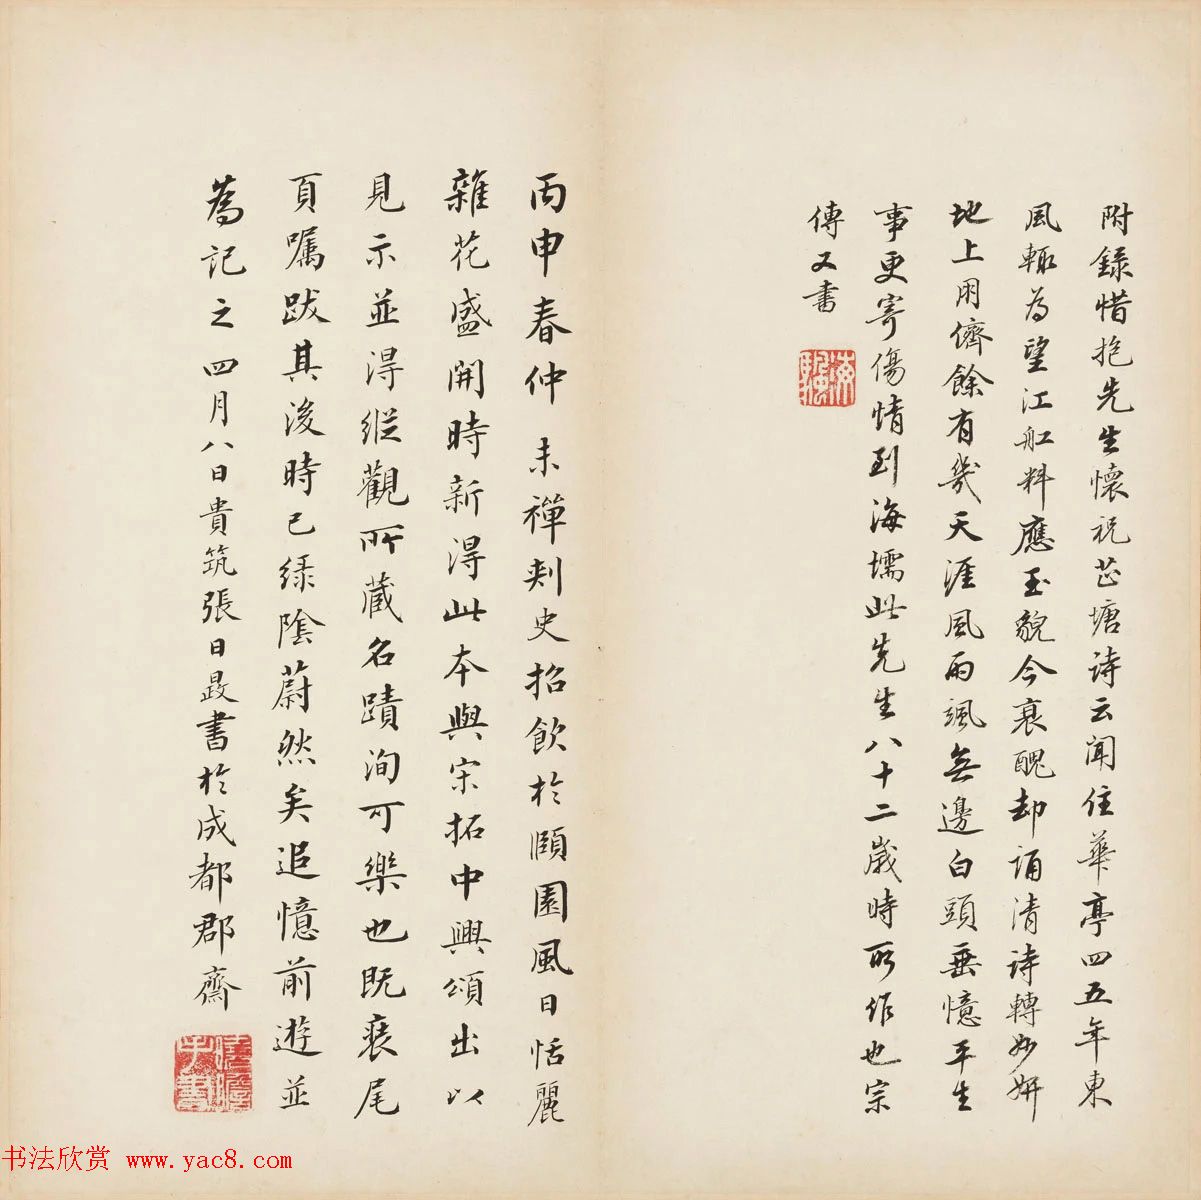 附錄惜抱先生懷祝芷塘詩云聞住華亭四五年東
風輒為望江船料應玉貌今衰醜却誦清詩轉妙妍
地上用儕餘有幾天涯風雨颯無邊白頭垂憶平生
事更寄傷情到海壖此先生八十二歲時所作也宗
傳又書
丙申春仲未禪刺史招飲於頤園風日恬麗
雜花盛開時新得此本與宋拓中興頌出以
見示並得縱觀所藏名蹟洵可樂也既裝尾
頁囑跋其後時已綠陰蔚然矣追憶前遊並
為記之四月八日貴筑張日晸書於成都郡齋
书法欣赏 www.yac8.com